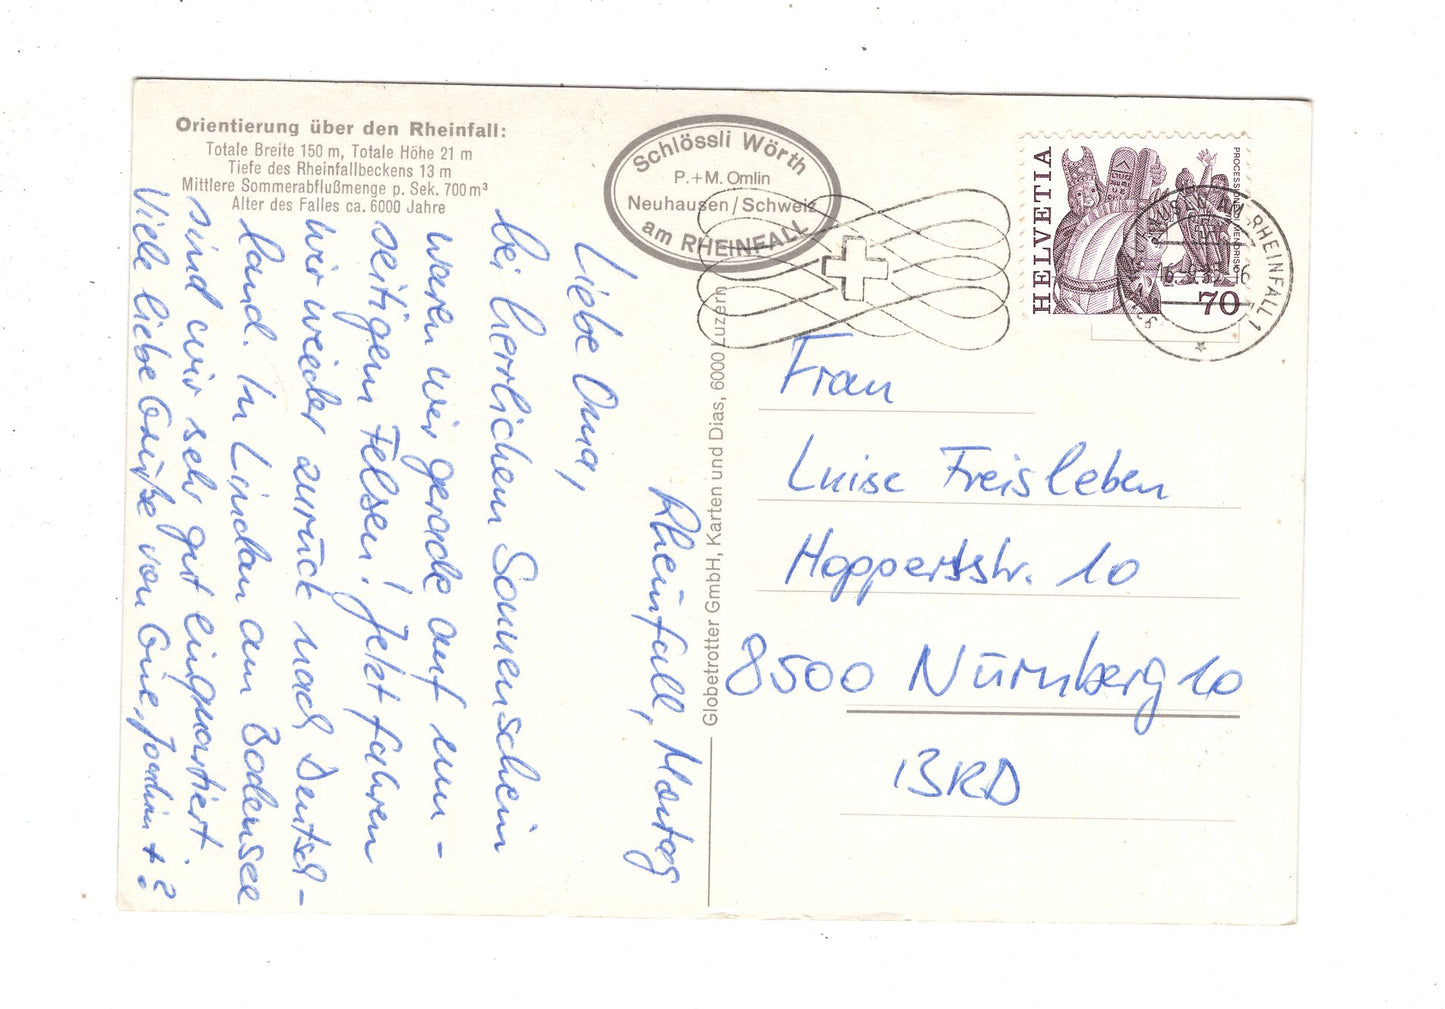 Orientierung über den Rheinfall:
Totale Breite 150 m, Totale Höhe 21 m
Tiefe des Rheinfallbeckens 13 m
Mittlere Sommerabflußmenge p. Sek. 700 m³
Alter des Falles ca. 6000 Jahre
Schlössli Wörth
P.+M. Omlin
Neuhausen/Schweiz
am RHEINFALL
HELVETIA
PROCESSIONI DI MENDRISIO
70
AM RHEINFALL 1
Globetrotter GmbH, Karten und Dias, 6000 Luzern
Rheinfall, Montag
Liebe Oma,
bei herrlichem Sonnenschein
waren wir gerade auf um-
seitigem Felsen! Jetzt fahren
wir wieder zurück nach Deutsch-
land. In Lindau am Bodensee
sind wir sehr gut einquartiert.
Viele liebe Grüße von
+ ?
Frau
Luise Freisleben
Hoppertstr. 10
8500 Nürnberg 10
BRD